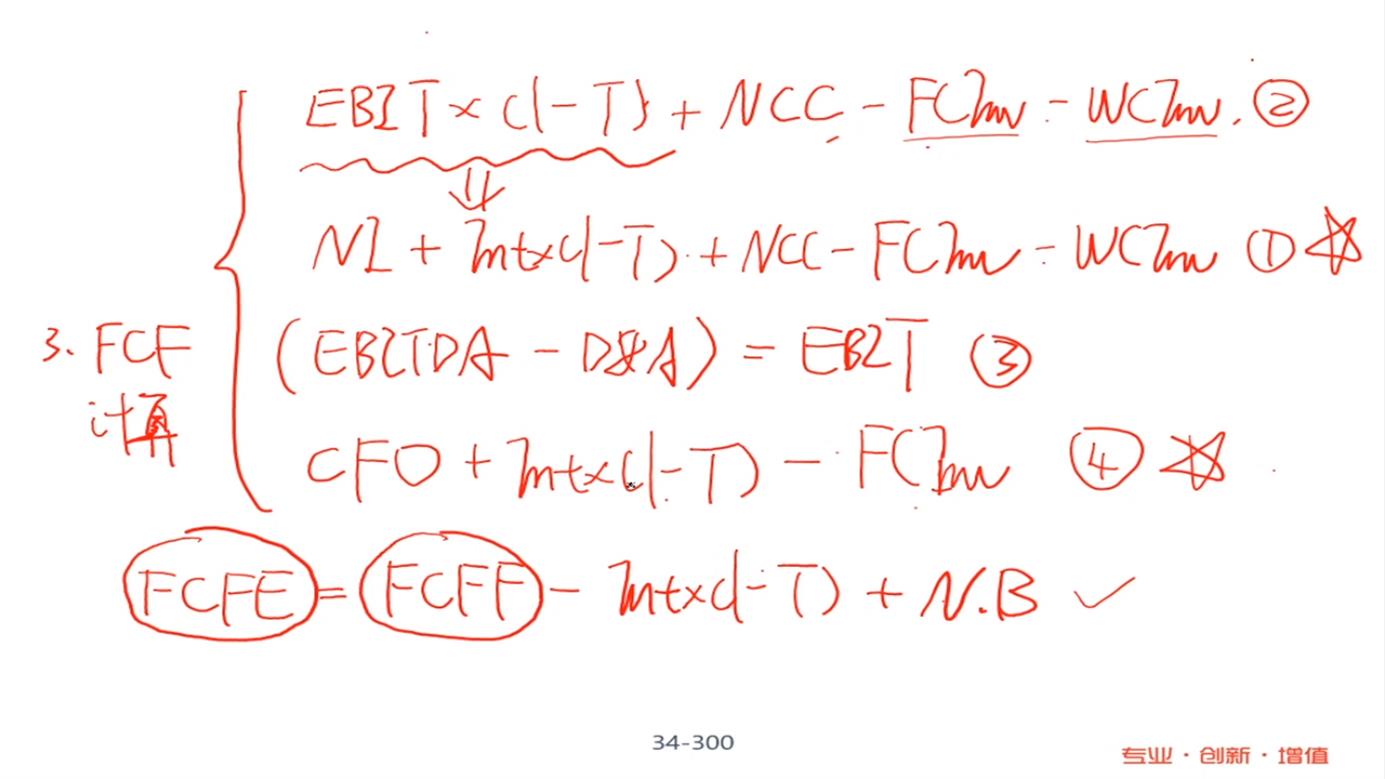 EBIT×(1-T)+NCC-FCInv-WCInv. ②
NI+Int×(1-T)+NCC-FCInv-WCInv ①☆
3. FCF
计算
(EBITDA-D&A)=EBIT ③
CFO+Int×(1-T)-FCInv ④☆
FCFE=FCFF-Int×(1-T)+N.B ✓
34-300
专业·创新·增值